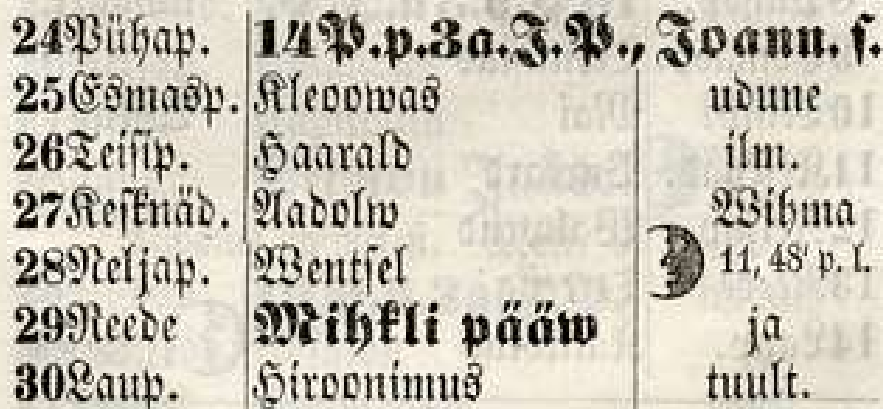 24 Pühap. 14 P. p. 3 a. J. P., Joann. s.
25 Esmasp. Kleoowas udune
26 Teisip. Haarald ilm.
27 Kesknäd. Aadolw Wihma
28 Neljap. Wentsel 11, 48' p. l.
29 Reede Mihkli pääw ja
30 Laup. Hiroonimus tuult.